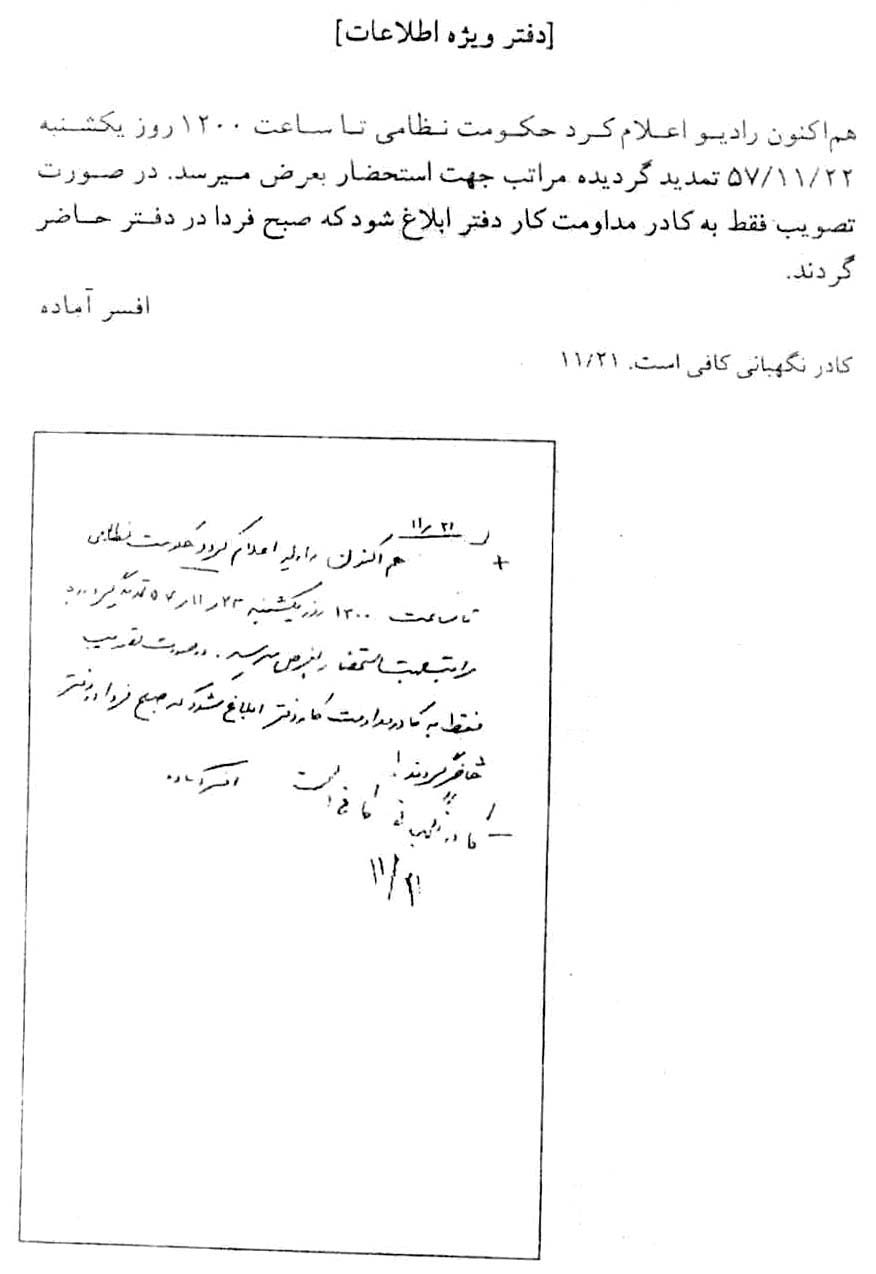 [دفتر ویژه اطلاعات]
هم‌اکنون رادیو اعلام کرد حکومت نظامی تا ساعت ۱۲۰۰ روز یکشنبه
۵۷/۱۱/۲۲ تمدید گردیده مراتب جهت استحضار بعرض میرسد. در صورت
تصویب فقط به کادر مداومت کار دفتر ابلاغ شود که صبح فردا در دفتر حاضر
گردند.
افسر آماده
کادر نگهبانی کافی است. ۱۱/۲۱
۱۱/۲۱
هم اکنون رادیو اعلام کرد حکومت نظامی
تا ساعت ۱۲۰۰ روز یکشنبه
مراتب جهت استحضار بعرض میرسد. در صورت تصویب
فقط به کادر مداومت کار دفتر ابلاغ شود که صبح فردا در دفتر
حاضر گردند.
افسر آماده
کادر نگهبانی کافی است
۱۱/۲۱